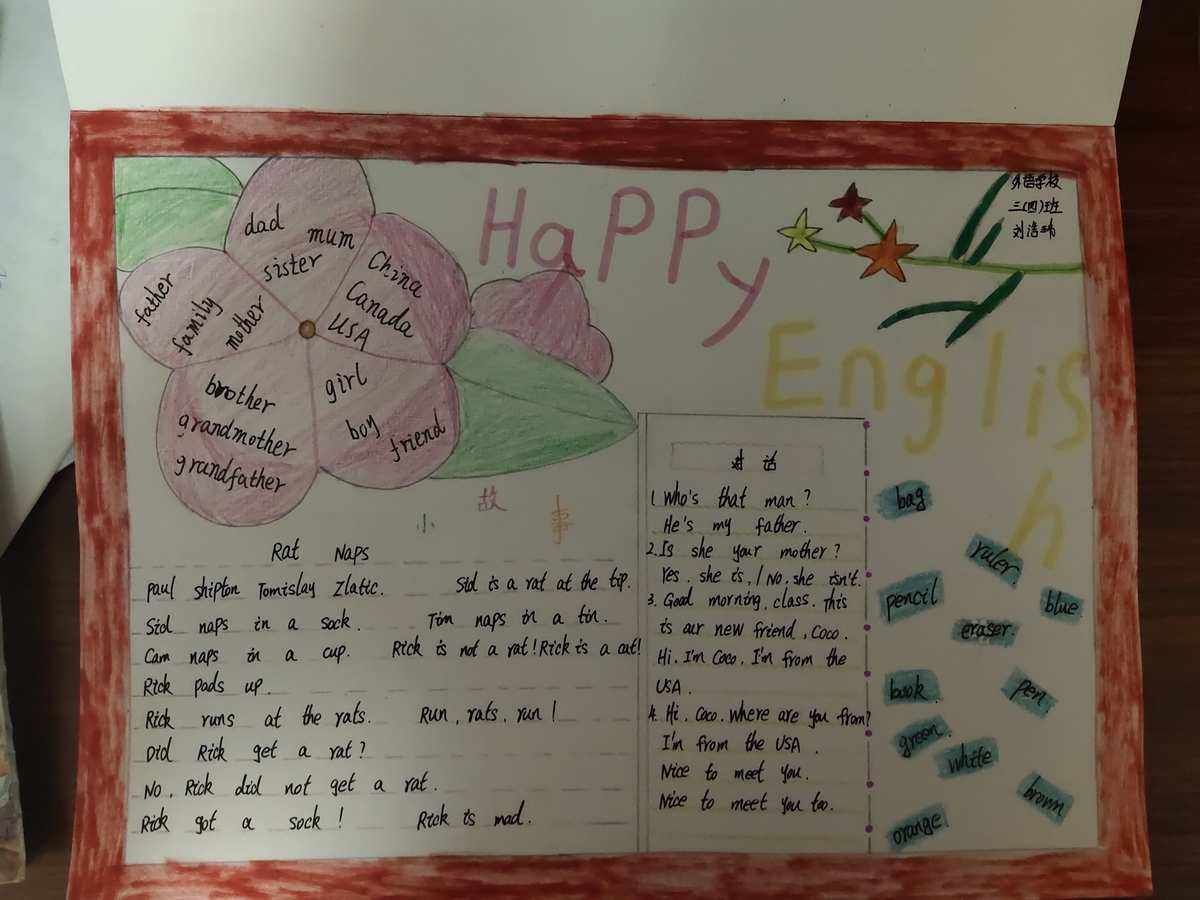 HaPPy
English
外语学校
三(四)班
刘浩玮
dad
mum
sister
China
Canada
USA
father
family
mother
brother
grandmother
grandfather
girl
boy
friend
小故事
Rat Naps
Paul shipton Tomislay Zlatic. Sid is a rat at the tip.
Sid naps in a sock. Tim naps in a tin.
Cam naps in a cup. Rick is not a rat! Rick is a cat!
Rick pads up.
Rick runs at the rats. Run, rats, run!
Did Rick get a rat?
No, Rick did not get a rat.
Rick got a sock! Rick is mad.
对话
1. Who's that man?
He's my father.
2. Is she your mother?
Yes, she is, / No, she isn't.
3. Good morning, class. This
is our new friend, Coco.
Hi, I'm Coco, I'm from the
USA.
4. Hi, Coco. Where are you from?
I'm from the USA.
Nice to meet you.
Nice to meet you too.
bag
ruler.
pencil
blue
eraser.
book
pen
green.
white
brown
orange.